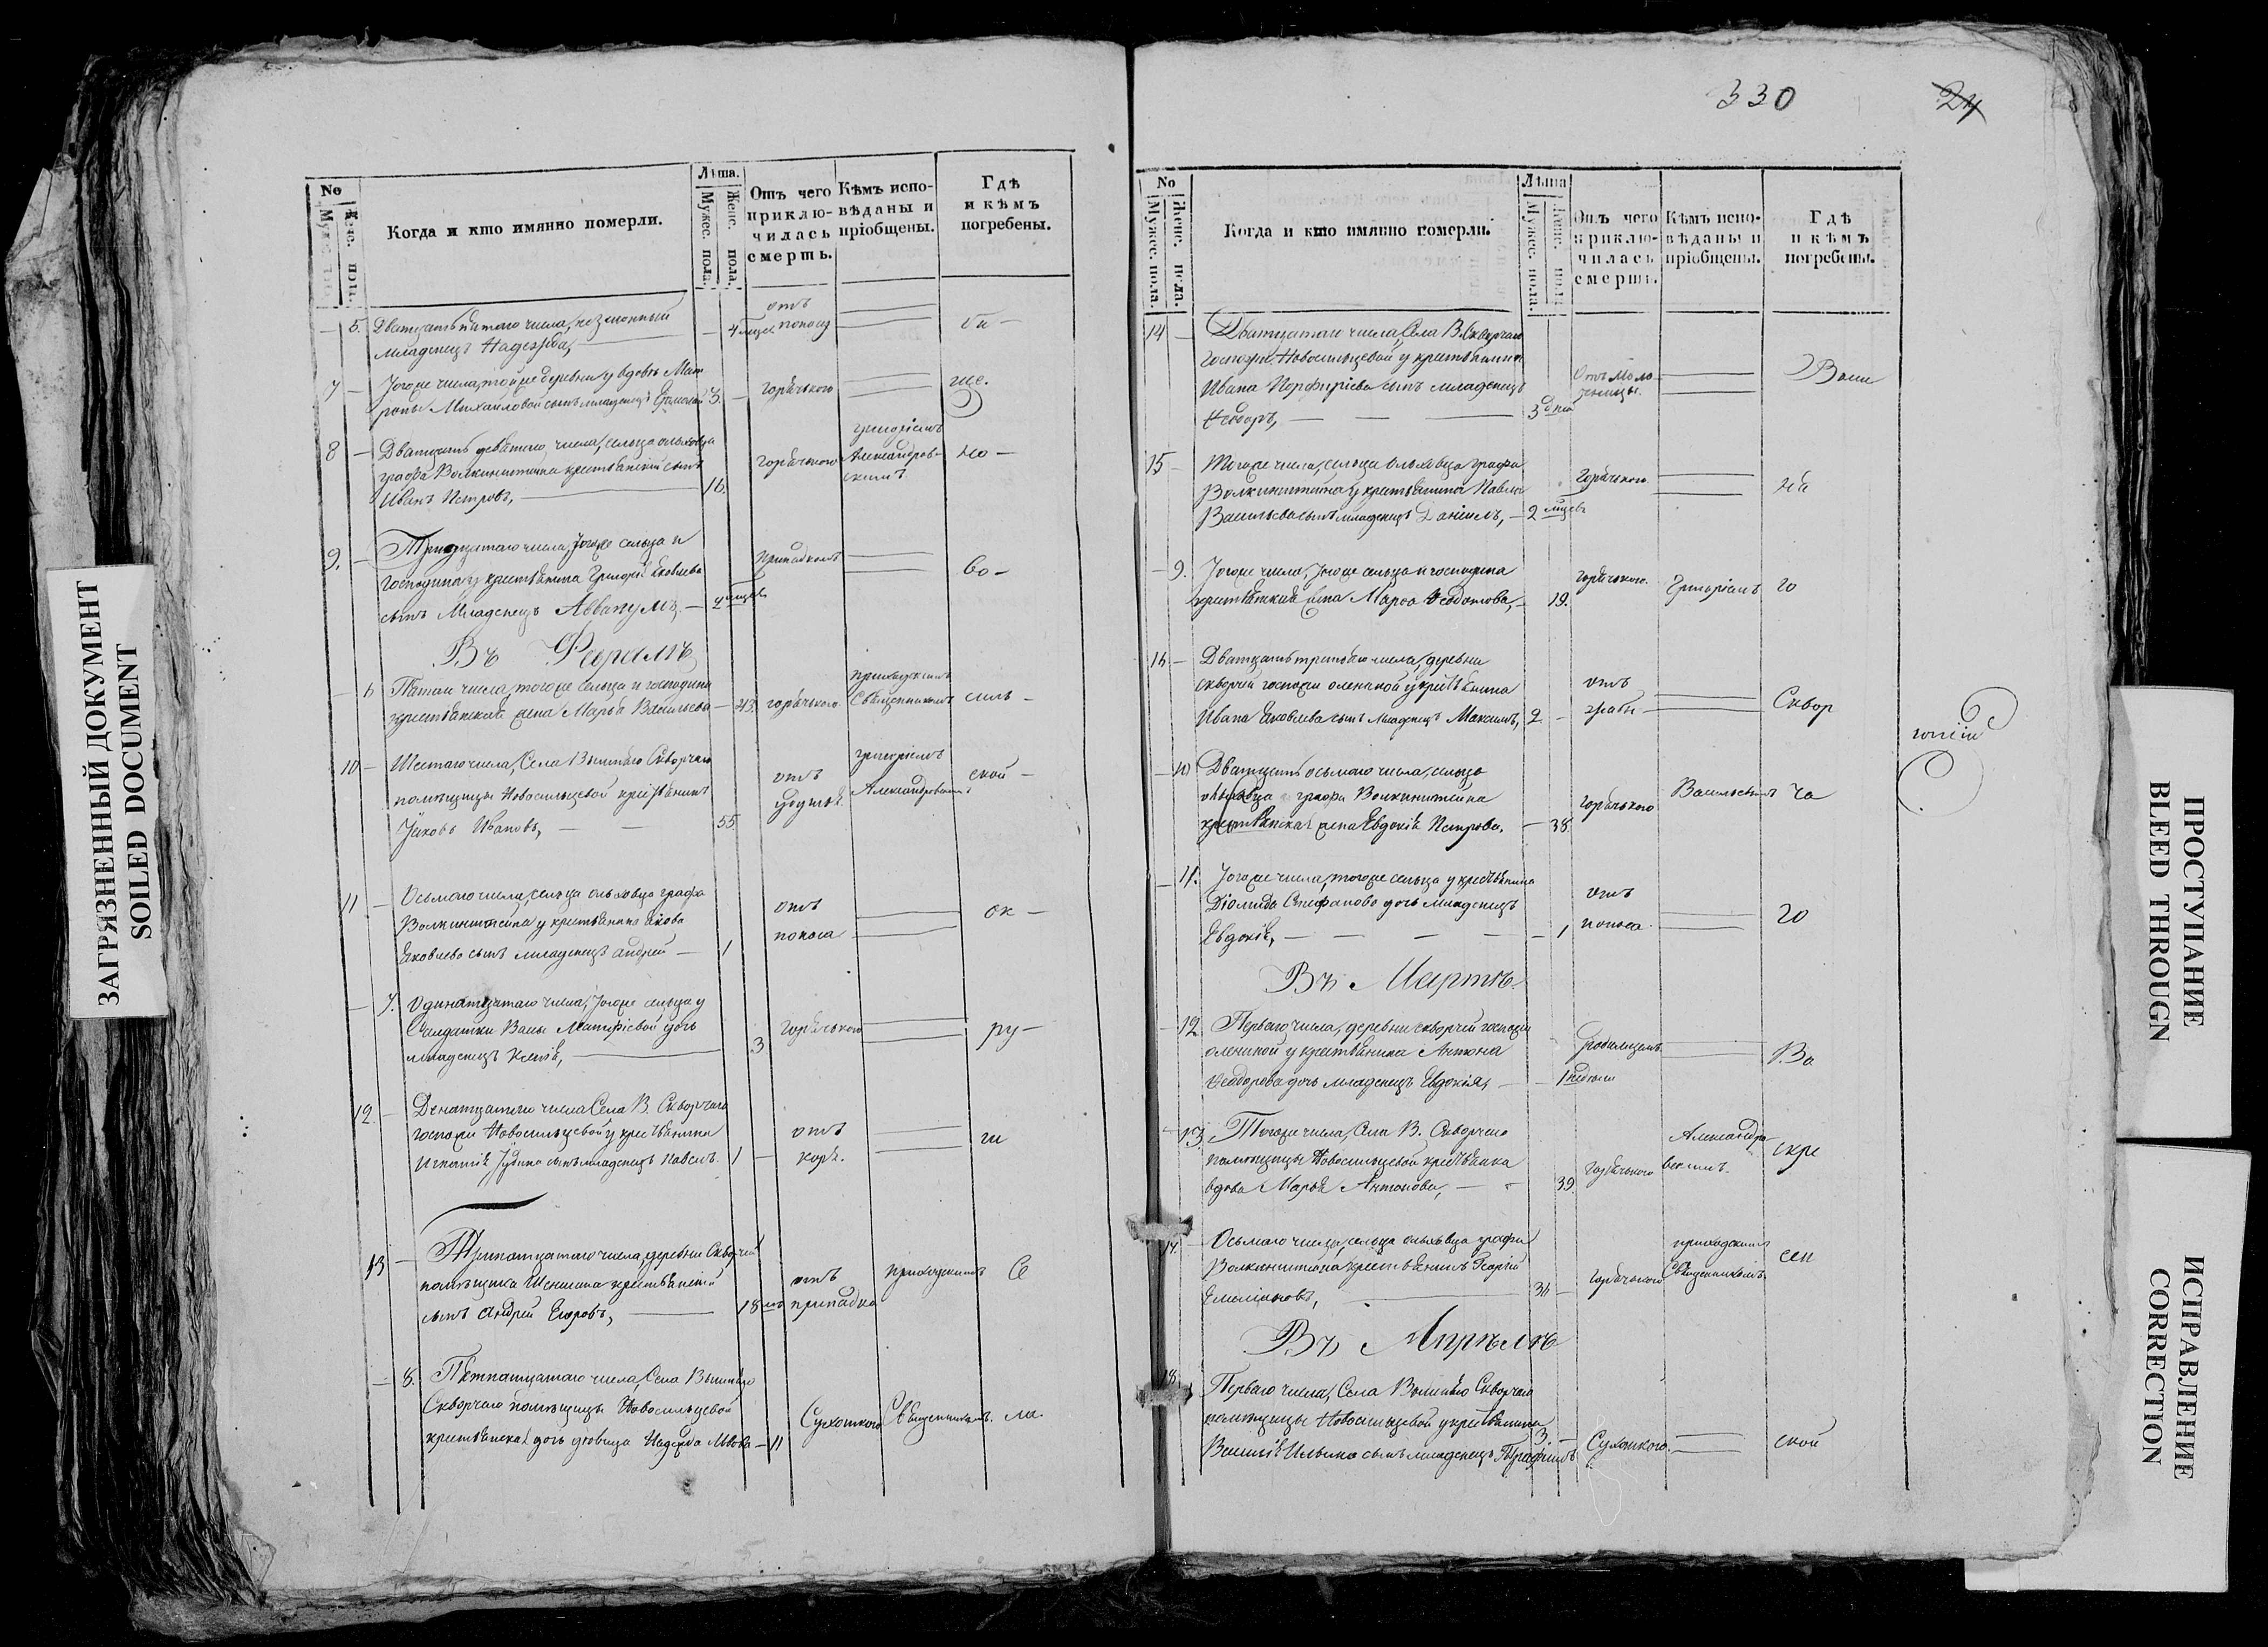 330
24
№
Мужес. пола.
Женс. пола.
Когда и кто имянно померли.
Лѣта.
Мужес. пола.
Женс. пола.
Отъ чего приклю-
чилась
смерть.
Кѣмъ испо-
вѣданы и
пріобщены.
Гдѣ
и кѣмъ
погребены.
5. Дватцать пятаго числа, незаконный
младенецъ Надежда, 4 мцес. отъ поносу
7 Тогоже числа, тойже деревни у вдовы Мат
роны Михайловой сынъ младенецъ 3. горячькою ше.
8 Дватцать девятаго числа, сельца ольховца
графа Волкинштина крестьянскій сынъ
Иванъ Петровъ, 16. горячькою григоріемъ
Александров-
скимъ но
9. Тридцатаго числа, тогоже сельца и
Господина у крестьянина Григорія Яковлева
сынъ Младенецъ Аввакумъ, припадкомъ во
Въ Февралѣ
6 Пятаго числа, тогоже сельца и господина
крестьянская жена Марья Васильева 43. горячькою приходскимъ
Священникомъ силь
10 Шестаго числа, Села Вышняго Скворчаго
помѣщицы Новосильцевой крестьянинъ
Іаковъ Ивановъ, 55 отъ григоріемъ
Александровскимъ ской
11 Осьмаго числа, сельца ольховца графа
Волкинштейна у крестьянина Якова
Яковлева сынъ младенецъ андрей 1 отъ
поноса ок
7. Одинатцатаго числа, тогоже сельца у
Салдатки Матфіевой дочь
младенецъ Ксенія, 3 горячькою ру
12 Дватцатаго числа Села В. Скворчаго
госпожи Новосильцевой у крестьянина
Игнатія Іудина сынъ младенецъ павелъ. 1 отъ
кори. ги
13 Тринатцатаго числа, деревни Скворчей
помѣщика Шеншина крестьянскій
сынъ Андрей Егоровъ, 18 отъ
припадка приходскимъ Се
8. Пятнатцатаго числа, Села Вышняго
Скворчаго помѣщицы Новосильцевой
крестьянская дочь девица Надежда Львова 11 Сухоткою Священникомъ. ла.
№
Мужес. пола.
Женс. пола.
Когда и кто имянно померли.
Лѣта
Мужес. пола.
Женс. пола.
Отъ чего
приклю-
чилась
смерть.
Кѣмъ испо-
вѣданы и
пріобщены.
Гдѣ
и кѣмъ
погребены.
14 Дватцатаго числа, Села В. Скворчаго
Госпожи Новосильцевой у крестьянина
Ивана Порфиріева сынъ младенецъ
Ѳеодоръ, 3 дня Отъ моло
женицы. Выш
15 Тогоже числа, сельца ольховца графа
Волкинштейна у крестьянина Павла
Васильева сынъ младенецъ Даніилъ, 2 мцевъ горячькою. ня
9. Тогоже числа, тогоже сельца и господина
крестьянская жена Марѳа Ѳедотова, 19. горячькою. Григоріемъ го
16 Дватцать третьяго числа, деревни
скворчей госпожи олениной у крестьянина
Ивана Яковлева сынъ младенецъ Максимъ, 2. отъ
жабы Сквор
10 Дватцать осьмаго числа, сельца
ольховца графа Волкинштейна
крестьянская жена Евдокія Петрова. 38. горячькою Васильевымъ ча
11. Тогоже числа, тогоже сельца у крестьянина
Діомида Стефанова дочь младенецъ
Евдокія, 1 отъ
поноса. го
Въ Мартѣ
12 Перваго числа, деревни скворчей госпожи
олениной у крестьянина Антона
Ѳеодорова дочь младенецъ Евдокія, 1 недели Родимцемъ Во
13 Тогоже числа, Села В. Скворчаго
помѣщицы Новосильцевой крестьянка
вдова Марья Антонова, 39. горячькою Александро-
вскимъ. скре
17. Осьмаго числа, сельца ольховца графа
Волкинштейна крестьянинъ Георгій
Емельяновъ, 36 горячькою приходскимъ
Священникомъ сен
Въ Апрѣлѣ
18. Перваго числа, Села Вышняго Скворчаго
помѣщицы Новосильцевой у крестьянина
Василія Ильина сынъ младенецъ Трофимъ 3. Сухоткою. ской
ЗАГРЯЗНЕННЫЙ ДОКУМЕНТ
SOILED DOCUMENT
ПРОСТУПАНИЕ
BLEED THROUGN
ИСПРАВЛЕНИЕ
CORRECTION